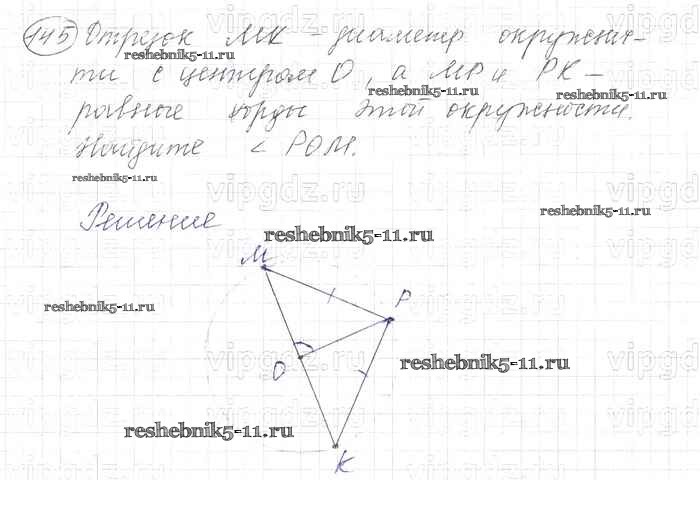 145 Отрезок МК - диаметр окружнос-
reshebnik5-11.ru
ти с центром О, а МР и РК -
reshebnik5-11.ru
reshebnik5-11.ru
равные хорды этой окружности.
Найдите < РОМ.
reshebnik5-11.ru
vipgdz.ru
reshebnik5-11.ru
Решение
reshebnik5-11.ru
М
Р
reshebnik5-11.ru
О
reshebnik5-11.ru
reshebnik5-11.ru
К